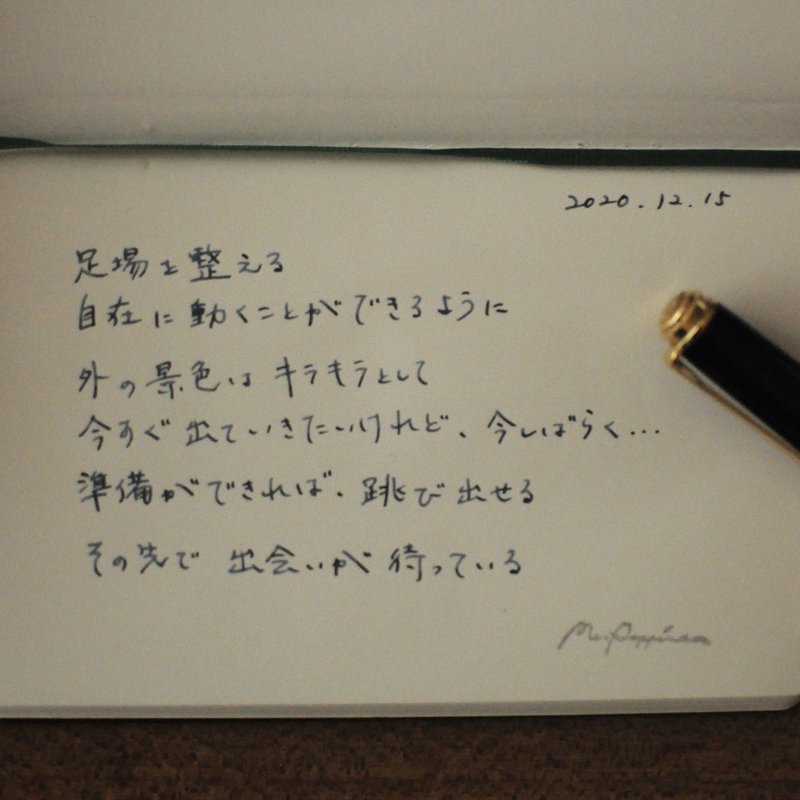 2020.12.15
足場を整える
自在に動くことができるように
外の景色はキラキラとして
今すぐ出ていきたいけれど、今しばらく…
準備ができれば、跳び出せる
その先で 出会いが 待っている